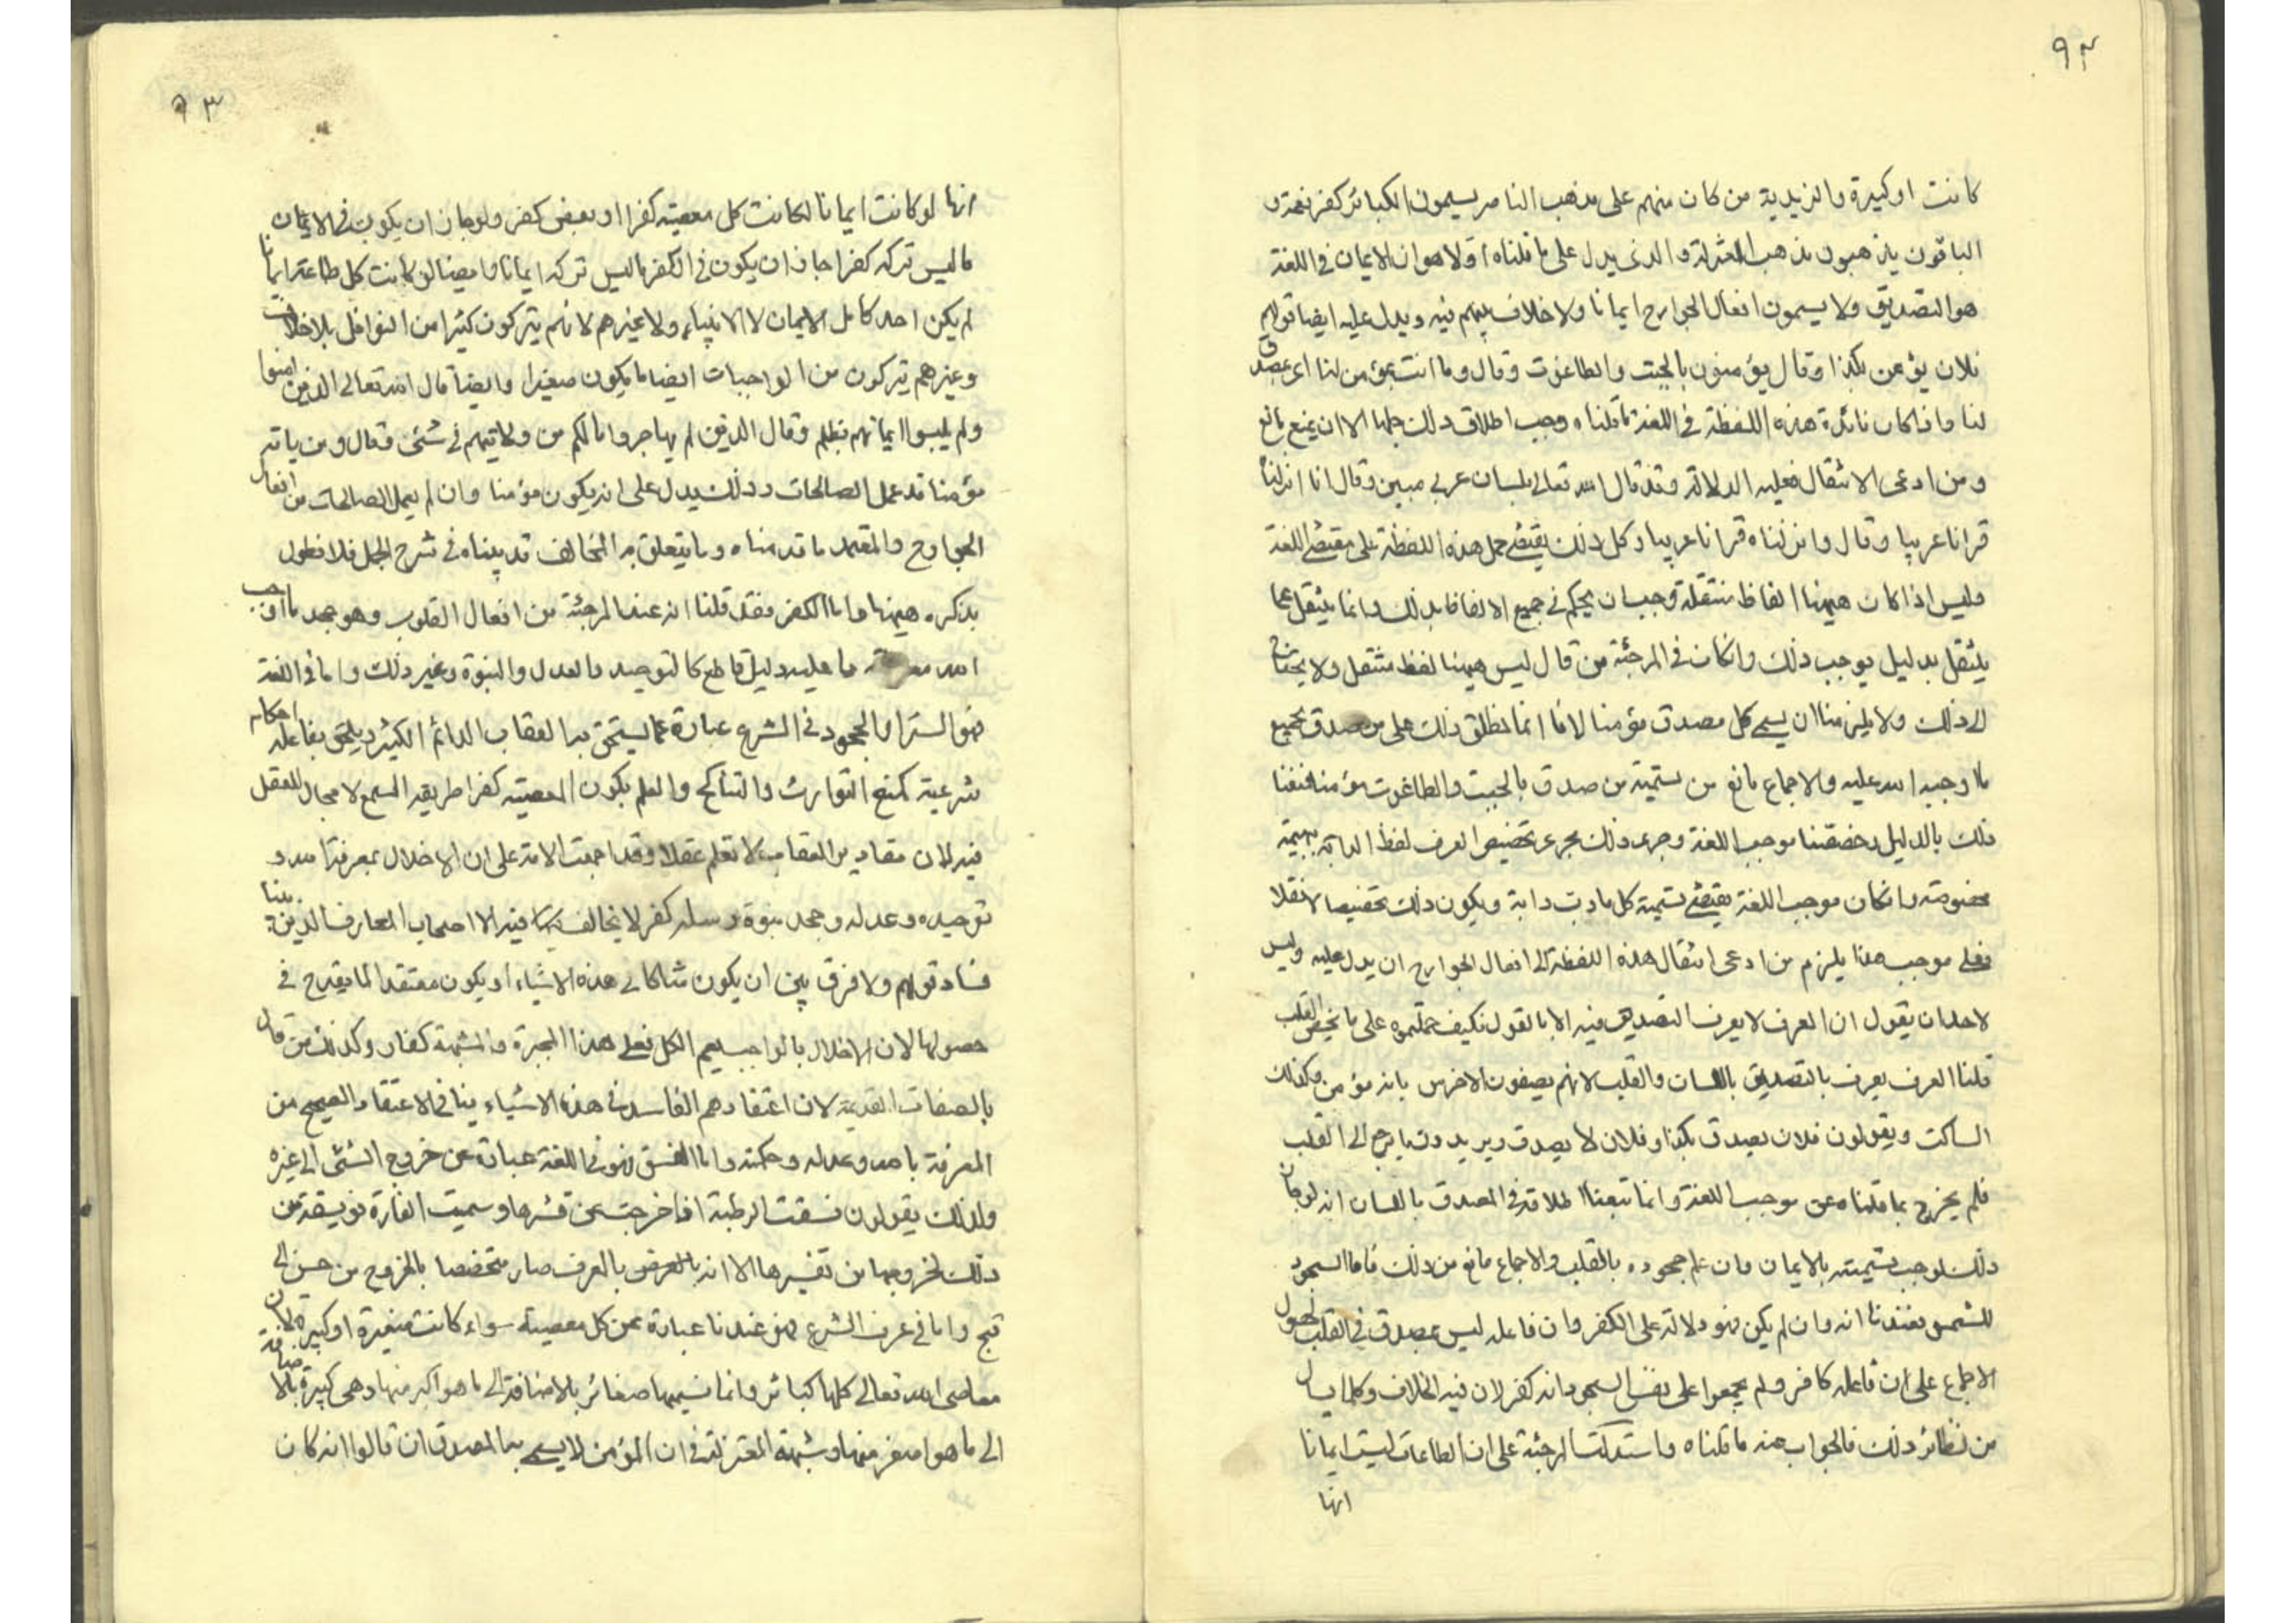 ٩٢
كانت او كبيرة والزيدية من كان منهم على مذهب الناصر يسمون الكبائر كفر نعمة و
الباقون يذهبون مذهب المعتزلة والذى يدل على ما قلناه اولا هو ان الايمان فى اللغة
هو التصديق ولا يسمون افعال الجوارح ايمانا ولا خلاف بينهم فيه ويدل عليه ايضا قولهم
فلان يؤمن بكذا وقال يؤمنون بالجبت والطاغوت وقال وما انت بمؤمن لنا اى بمصدق
لنا واذا كان فائدة هذه اللفظة فى اللغة ما قلناه وجب اطلاق ذلك عليها الا ان يمنع مانع
ومن ادعى الانتقال فعليه الدلالة وقد قال الله تعالى بلسان عربى مبين وقال انا انزلناه
قرانا عربيا وقال وانزلناه قرانا عربيا وكل ذلك يقتضى حمل هذه اللفظة على مقتضى اللغة
وليس اذا كان هيهنا الفاظ منتقلة وجب ان يحكم فى جميع الالفاظ بذلك وانما ينتقل عما
ينتقل بدليل يوجب ذلك وان كان فى المرجئة من قال ليس هيهنا لفظ منتقل ولا يحتاج
الى ذلك ولا يلزمنا ان يسمى كل مصدق مؤمنا لانا انما نطلق ذلك على من صدق بجميع
ما اوجبه الله عليه والاجماع مانع من تسمية من صدق بالجبت والطاغوت مؤمنا فمنعنا
ذلك بالدليل وخصصنا موجب اللغة وجرى ذلك مجرى تخصيص العرف لفظ الدابة ببهيمة
مخصوصة وان كان موجب اللغة يقتضى تسمية كل ما دب دابة ويكون ذلك تخصيصا لا نقلا
فعلى موجب هذا يلزم من ادعى انتقال هذه اللفظة الى افعال الجوارح ان يدل عليه وليس
لاحد ان يقول ان العرف لا يعرف التصديق فيه الا بالقول فكيف حملتموه على ما يختص القلب
قلنا العرف يعرف بالتصديق باللسان والقلب لانهم يصفون الاخرس بانه مؤمن وكذلك
الساكت ويقولون فلان يصدق بكذا وفلان لا يصدق ويريدون ما يرجع الى القلب
فلم يخرج بما قلناه عن موجب اللغة وانما تبعنا اطلاقه فى المصدق باللسان انه لو جاز
ذلك لوجب تسميته بالايمان وان علم جحوده بالقلب والاجماع مانع من ذلك فاما السجود
للشمس فعندنا انه وان لم يكن فهو دلالة على الكفر وان فاعله ليس بمصدق فى القلب لحصول
الاجماع على ان فاعله كافر ولم يجمعوا على نفس السجود انه كفر لان فيه الخلاف وكلما يسال
من نظائر ذلك فالجواب عنه ما قلناه واستدلت المرجئة على ان الطاعات ليست ايمانا
انها
٩٣
انها لو كانت ايمانا لكانت كل معصية كفرا او بعض كفر ولو جاز ان يكون فى الايمان
ما ليس تركه كفرا جاز ان يكون فى الكفر ما ليس تركه ايمانا وايضا لو كانت كل طاعة ايمانا
لم يكن احد كامل الايمان لا الانبياء ولا غيرهم لانهم يتركون كثيرا من النوافل بلا خلاف
وغيرهم يتركون من الواجبات ايضا ما يكون صغيرا وايضا قال الله تعالى الذين امنوا
ولم يلبسوا ايمانهم بظلم وقال الذين لم يهاجروا مالكم من ولايتهم فى شئ وقال ومن ياته
مؤمنا قد عمل الصالحات وذلك يدل على انه يكون مؤمنا وان لم يعمل الصالحات من افعال
الجوارح والمعتمد ما قدمناه وما يتعلق به المخالف قد بيناه فى شرح الجمل فلا نطول
بذكره هيهنا واما الكفر فقد قلنا انه عند المرجئة من افعال القلوب وهو جحد ما اوجب
الله معرفته ما عليه دليل قاطع كالتوحيد والعدل والنبوة وغير ذلك واما فى اللغة
فهو الستر او الجحود فى الشرع عبارة عما يستحق به العقاب الدائم الكثير ويلحق بفاعله احكام
شرعية كمنع التوارث والتناكح والعلم بكون المعصية كفرا طريقه السمع لا مجال للعقل
فيه لان مقادير العقاب لا تعلم عقلا وقد اجمعت الامة على ان الاخلال بمعرفة الله و
توحيده وعدله وجحد نبوة رسله كفر لا يخالف فيه الا اصحاب المعارف الذين بينا
فساد قولهم ولا فرق بين ان يكون شاكا فى هذه الاشياء او يكون معتقدا لما يقدح فى
حصولها لان الاخلال بالواجب يعم الكل فعلى هذا المجبرة والمشبهة كفار وكذلك من قال
بالصفات القديمة لان اعتقادهم الفاسد فى هذه الاشياء ينافى الاعتقاد الصحيح من
المعرفة بالله وعدله وحكمته واما الفسق فهو فى اللغة عبارة عن خروج الشئ الى غيره
ولذلك يقولون فسقت الرطبة اذا خرجت عن قشرها وسميت الفارة فويسقة من
ذلك لخروجها من نقبها الا انه بالعرف صار متخصصا بالخروج من حسن الى
قبح واما فى عرف الشرع فهو عندنا عبارة عن كل معصية سواء كانت صغيرة او كبيرة لان
معاصى الله تعالى كلها كبائر وانما نسميها صغائر بالاضافة الى ما هو اكبر منها وهى كبيرة بالاضافة
الى ما هو اصغر منها وشبهة المعتزلة فى ان المؤمن لا يسمى به المصدق ان قالوا انه كان